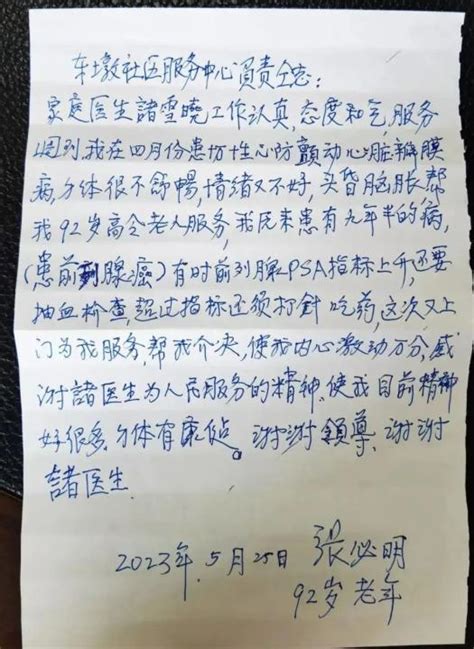 车墩社区服务中心负责仝志:
家庭医生諸雪曉工作认真,态度和气,服务
周到,我在四月份患切性心房顫动心脏瓣膜
病,身体很不舒暢,情绪又不好,头昏脑胀帮
我92岁高令老人服务,我原来患有九年半的病,
(患前列腺癌)有时前列腺PSA指标上升还要
抽血检查,超过指标还须打針吃药,这次又上
门为我服务,帮我介决,使我内心激动万分,感
谢諸医生为人民服务的精神,使我目前精神
好很多,身体有康。谢谢領導、谢谢
諸医生
2023年.5月25日 張必明
92岁老年